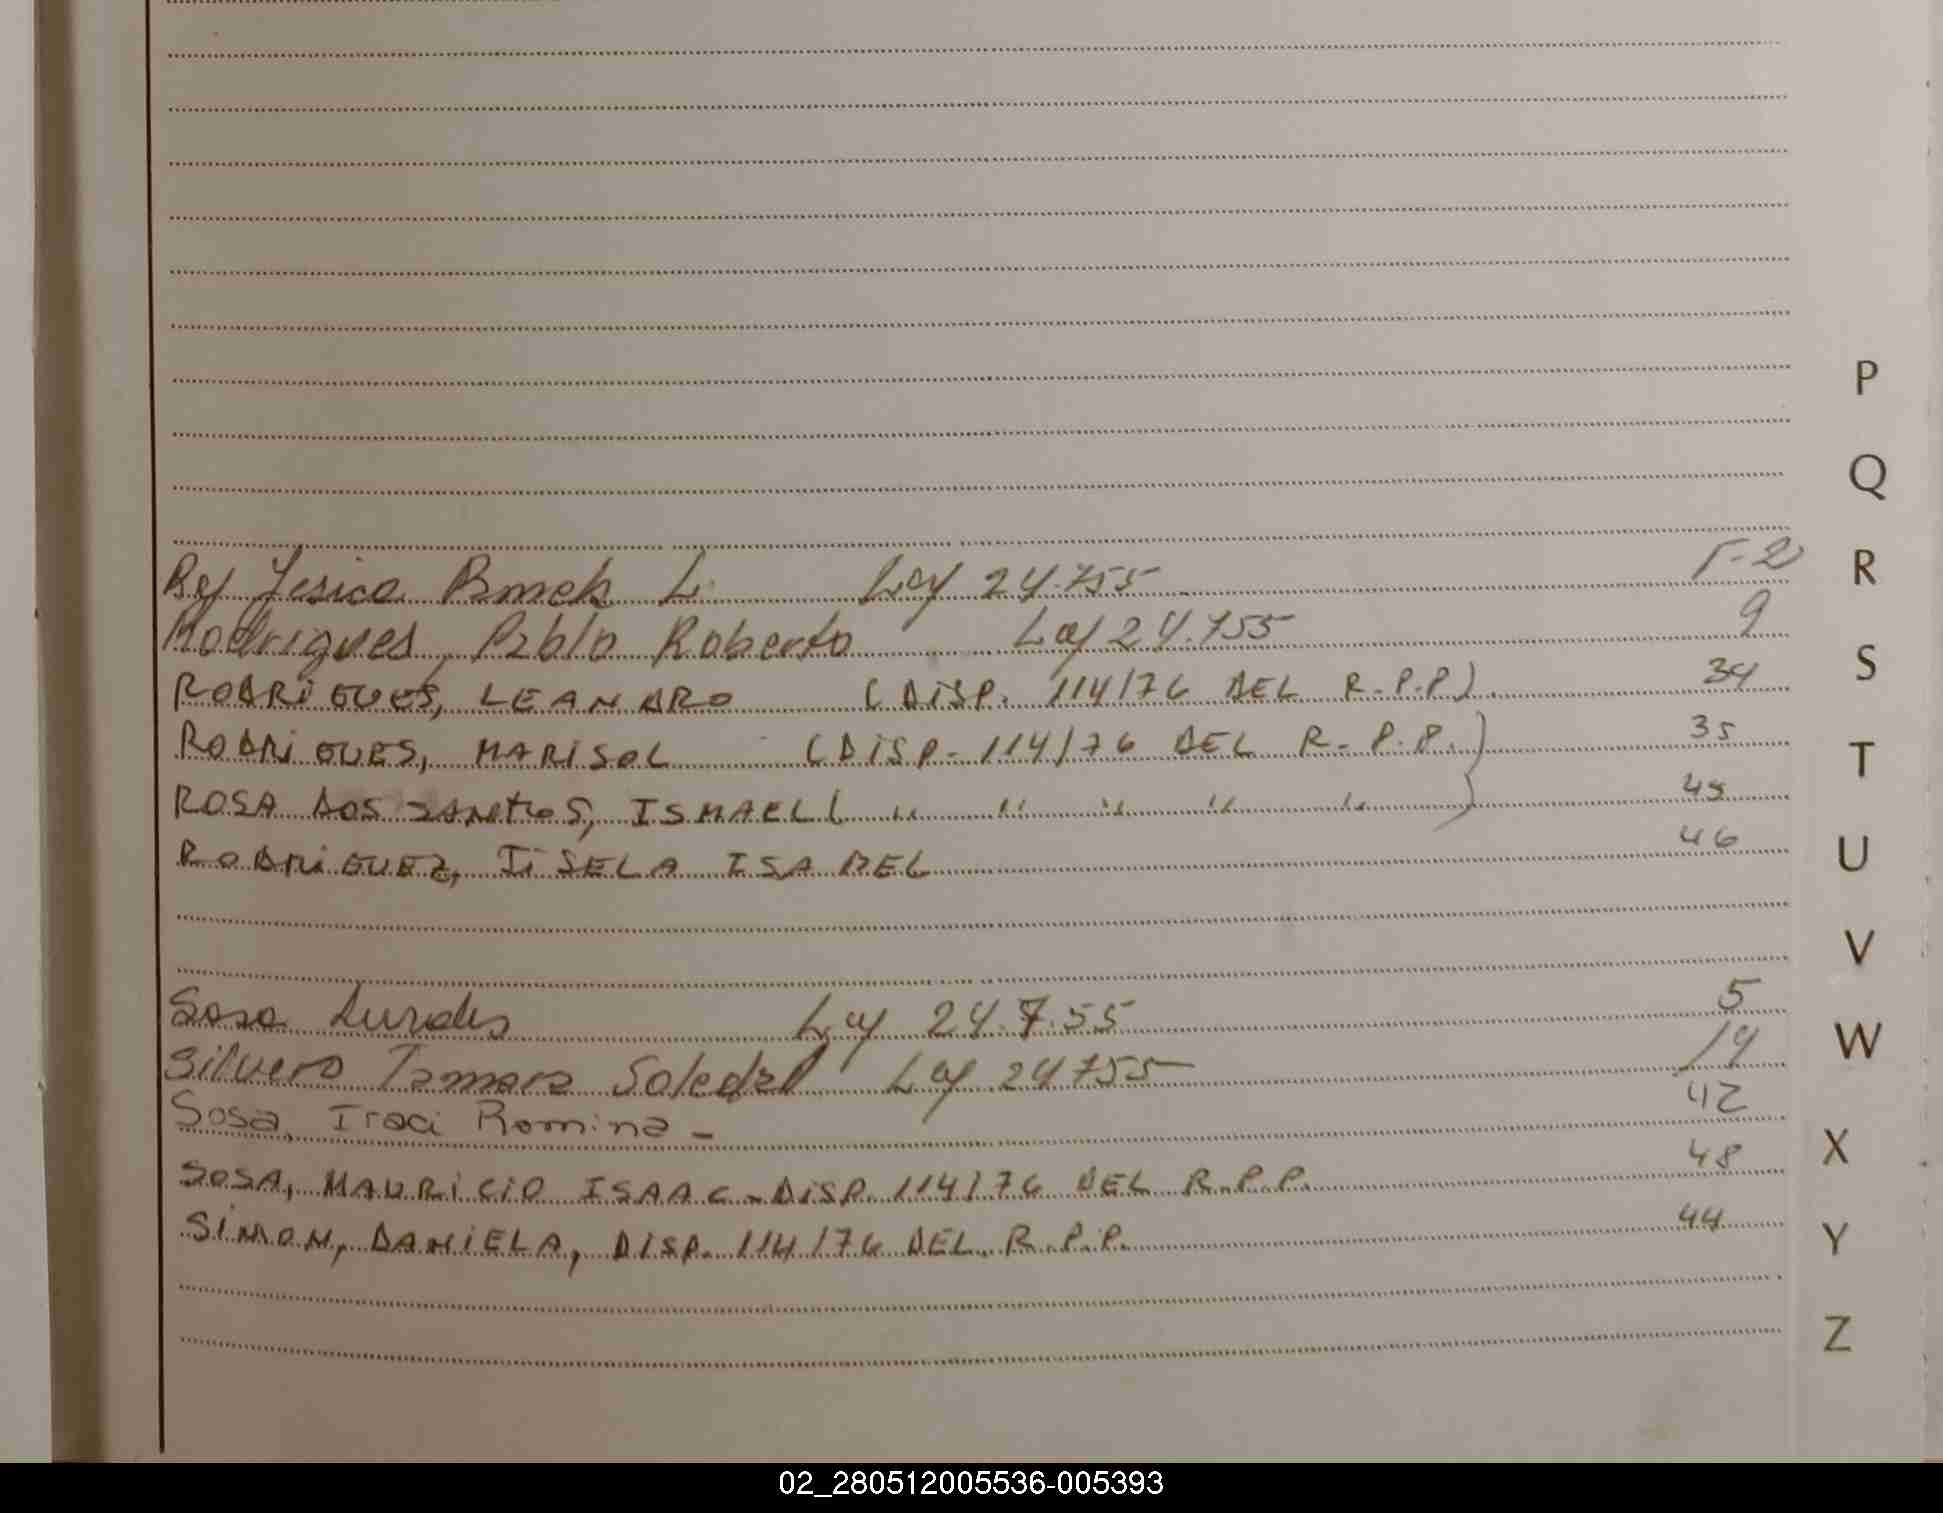 Rey Yesica Pamela L. Ley 24.755 F-2
Rodrigues, Pablo Roberto Ley 24.755 9
RODRIGUES, LEANDRO (DISP. 114/76 DEL R.P.P). 34
RODRIGUES, MARISOL (DISP- 114/76 DEL R-P.P.) 35
ROSA DOS SANTOS, ISMAEL ( " " " " " ) 45
RODRIGUEZ, JISELA ISABEL 46
Sosa Lurdes Ley 24.7.55 5
Silvero Tamara Soledad Ley 24755 14
Sosa, Iraci Romina - 42
SOSA, MAURICIO ISAAC - DISP. 114/76 DEL R.P.P. 48
SIMON, DANIELA, DISP. 114/76 DEL R.P.P. 44
P
Q
R
S
T
U
V
W
X
Y
Z
02_280512005536-005393